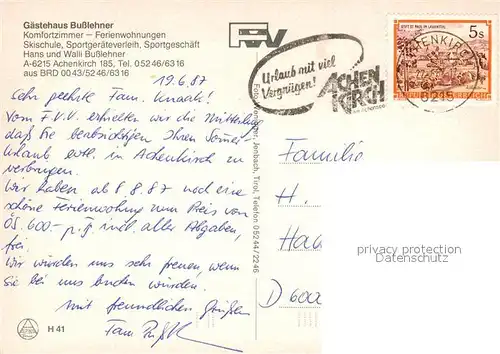 Gästehaus Bußlehner
Komfortzimmer – Ferienwohnungen
Skischule, Sportgeräteverleih, Sportgeschäft
Hans und Walli Bußlehner
A-6215 Achenkirch 185, Tel. 05246/6316
aus BRD 0043/5246/6316
19.6.87
Sehr geehrte Fam. Knaak!
Vom F.V.V. erhielten wir die Mitteilung
daß Sie beabsichtigen Ihren Sommer-
Urlaub evtl. in Achenkirch zu
verbringen.
Wir haben ab 8.8.87 noch eine
schöne Ferienwohnung zum Preis von
ÖS. 600.- p.T. inkl. aller Abgaben,
frei.
Wir würden uns sehr freuen, wenn
Sie bei uns buchen würden.
Mit freundlichen Grüßen
Fam.
H 41
Jenbach, Tirol, Telefon 05244/2246
Urlaub mit viel
Vergnügen!
ACHEN
KIRCH
5s
6215
Familie
H.
Ha
D 6000
privacy protection
Datenschutz